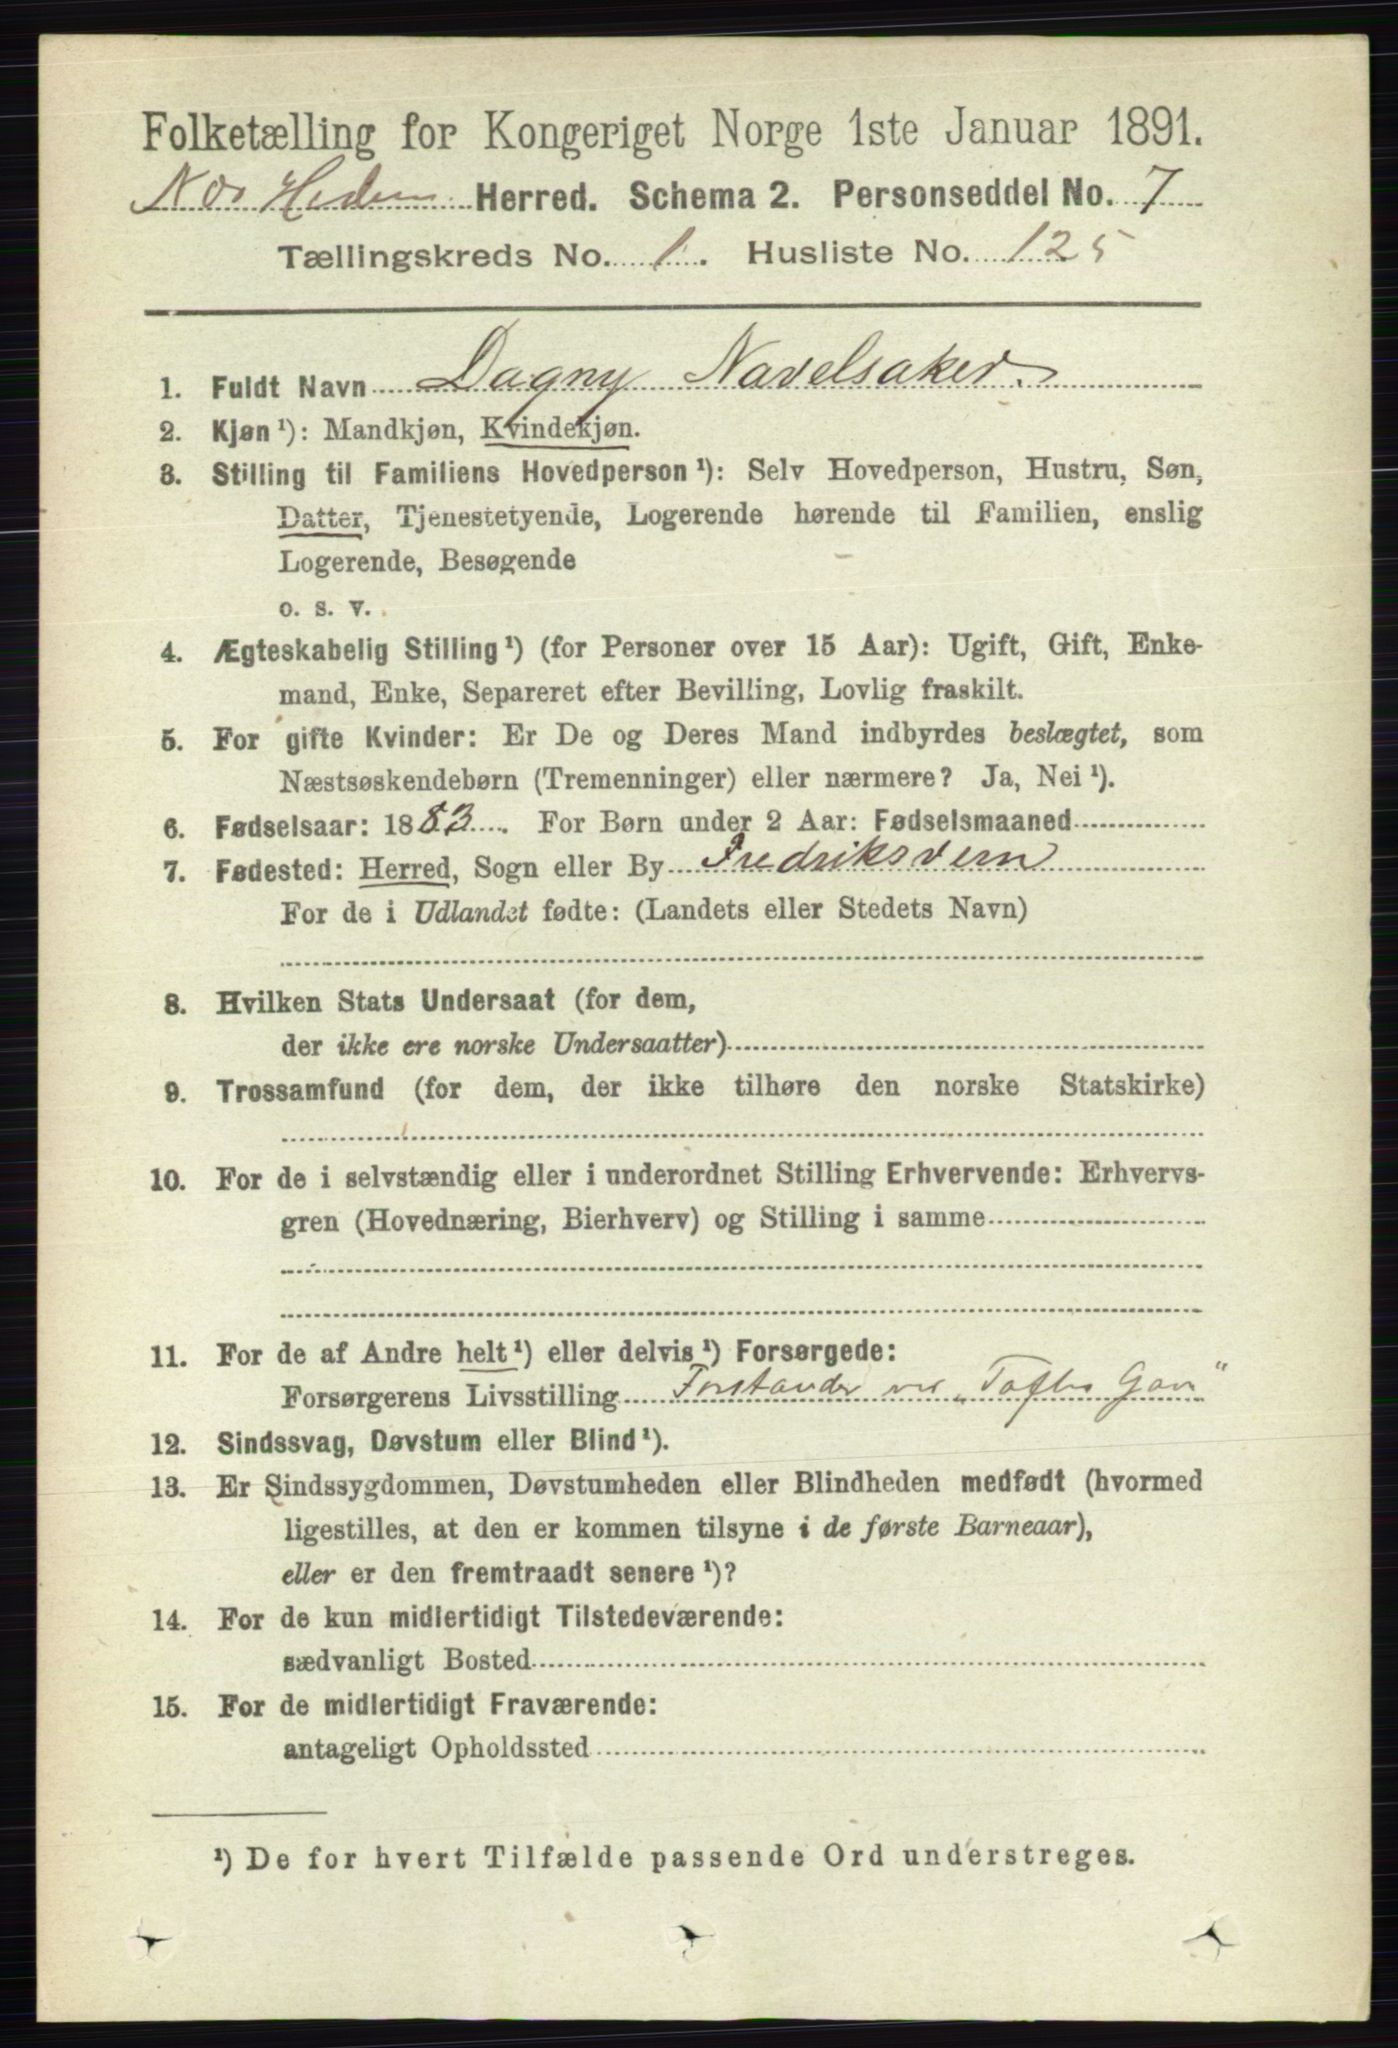 Folketælling for Kongeriget Norge 1ste Januar 1891.
Herred. Schema 2. Personseddel No. 7
Tællingskreds No. 1. Husliste No. 125
1. Fuldt Navn Dagny Navelsaker
2. Kjøn ¹): Mandkjøn, Kvindekjøn.
3. Stilling til Familiens Hovedperson ¹): Selv Hovedperson, Hustru, Søn,
Datter, Tjenestetyende, Logerende hørende til Familien, enslig
Logerende, Besøgende
o. s. v.
4. Ægteskabelig Stilling ¹) (for Personer over 15 Aar): Ugift, Gift, Enke-
mand, Enke, Separeret efter Bevilling, Lovlig fraskilt.
5. For gifte Kvinder: Er De og Deres Mand indbyrdes beslægtet, som
Næstsøskendebørn (Tremenninger) eller nærmere? Ja, Nei ¹).
6. Fødselsaar: 1883. For Børn under 2 Aar: Fødselsmaaned
7. Fødested: Herred, Sogn eller By Fredriksvern
For de i Udlandet fødte: (Landets eller Stedets Navn)
8. Hvilken Stats Undersaat (for dem,
der ikke ere norske Undersaatter)
9. Trossamfund (for dem, der ikke tilhøre den norske Statskirke)
10. For de i selvstændig eller i underordnet Stilling Erhvervende: Erhvervs-
gren (Hovednæring, Bierhverv) og Stilling i samme
11. For de af Andre helt ¹) eller delvis ¹) Forsørgede:
Forsørgerens Livsstilling Forstander ved „Toftes Gave"
12. Sindssvag, Døvstum eller Blind ¹).
13. Er Sindssygdommen, Døvstumheden eller Blindheden medfødt (hvormed
ligestilles, at den er kommen tilsyne i de første Barneaar),
eller er den fremtraadt senere ¹)?
14. For de kun midlertidigt Tilstedeværende:
sædvanligt Bosted
15. For de midlertidigt Fraværende:
antageligt Opholdssted
¹) De for hvert Tilfælde passende Ord understreges.